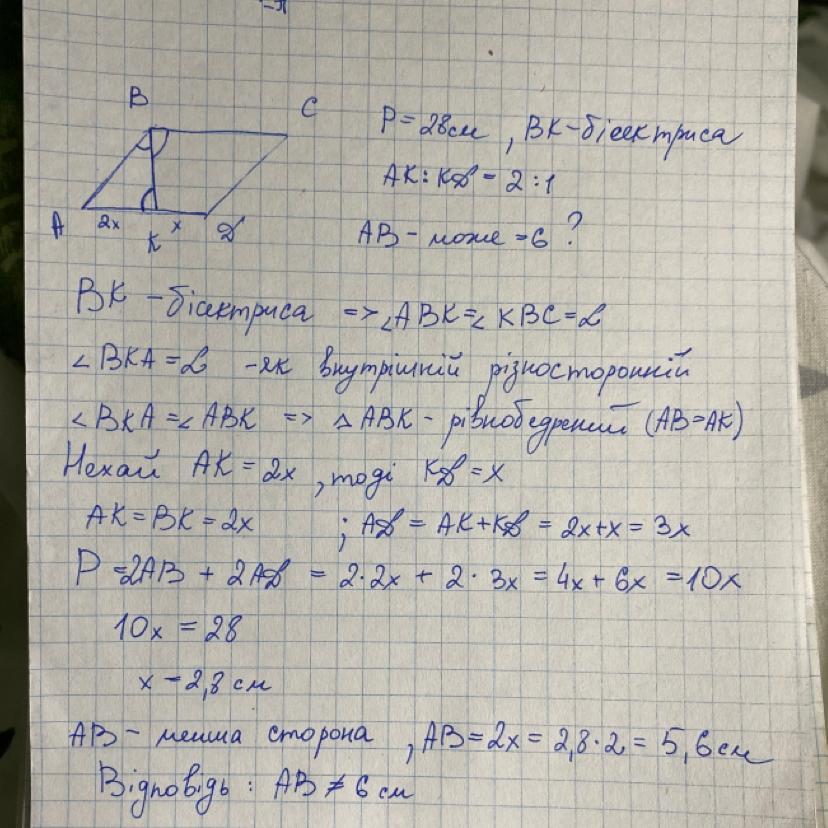 B
C
A
2x
K
x
D
P = 28 см, BK - бісектриса
AK : KD = 2 : 1
AB - може = 6 ?
BK - бісектриса => ∠ABK = ∠KBC = α
∠BKA = α - як внутрішній різносторонній
∠BKA = ∠ABK => △ABK - рівнобедрений (AB = AK)
Нехай AK = 2x, тоді KD = x
AK = BK = 2x ; AD = AK + KD = 2x + x = 3x
P = 2AB + 2AD = 2·2x + 2·3x = 4x + 6x = 10x
10x = 28
x = 2,8 см
AB - менша сторона, AB = 2x = 2,8·2 = 5,6 см
Відповідь : AB ≠ 6 см